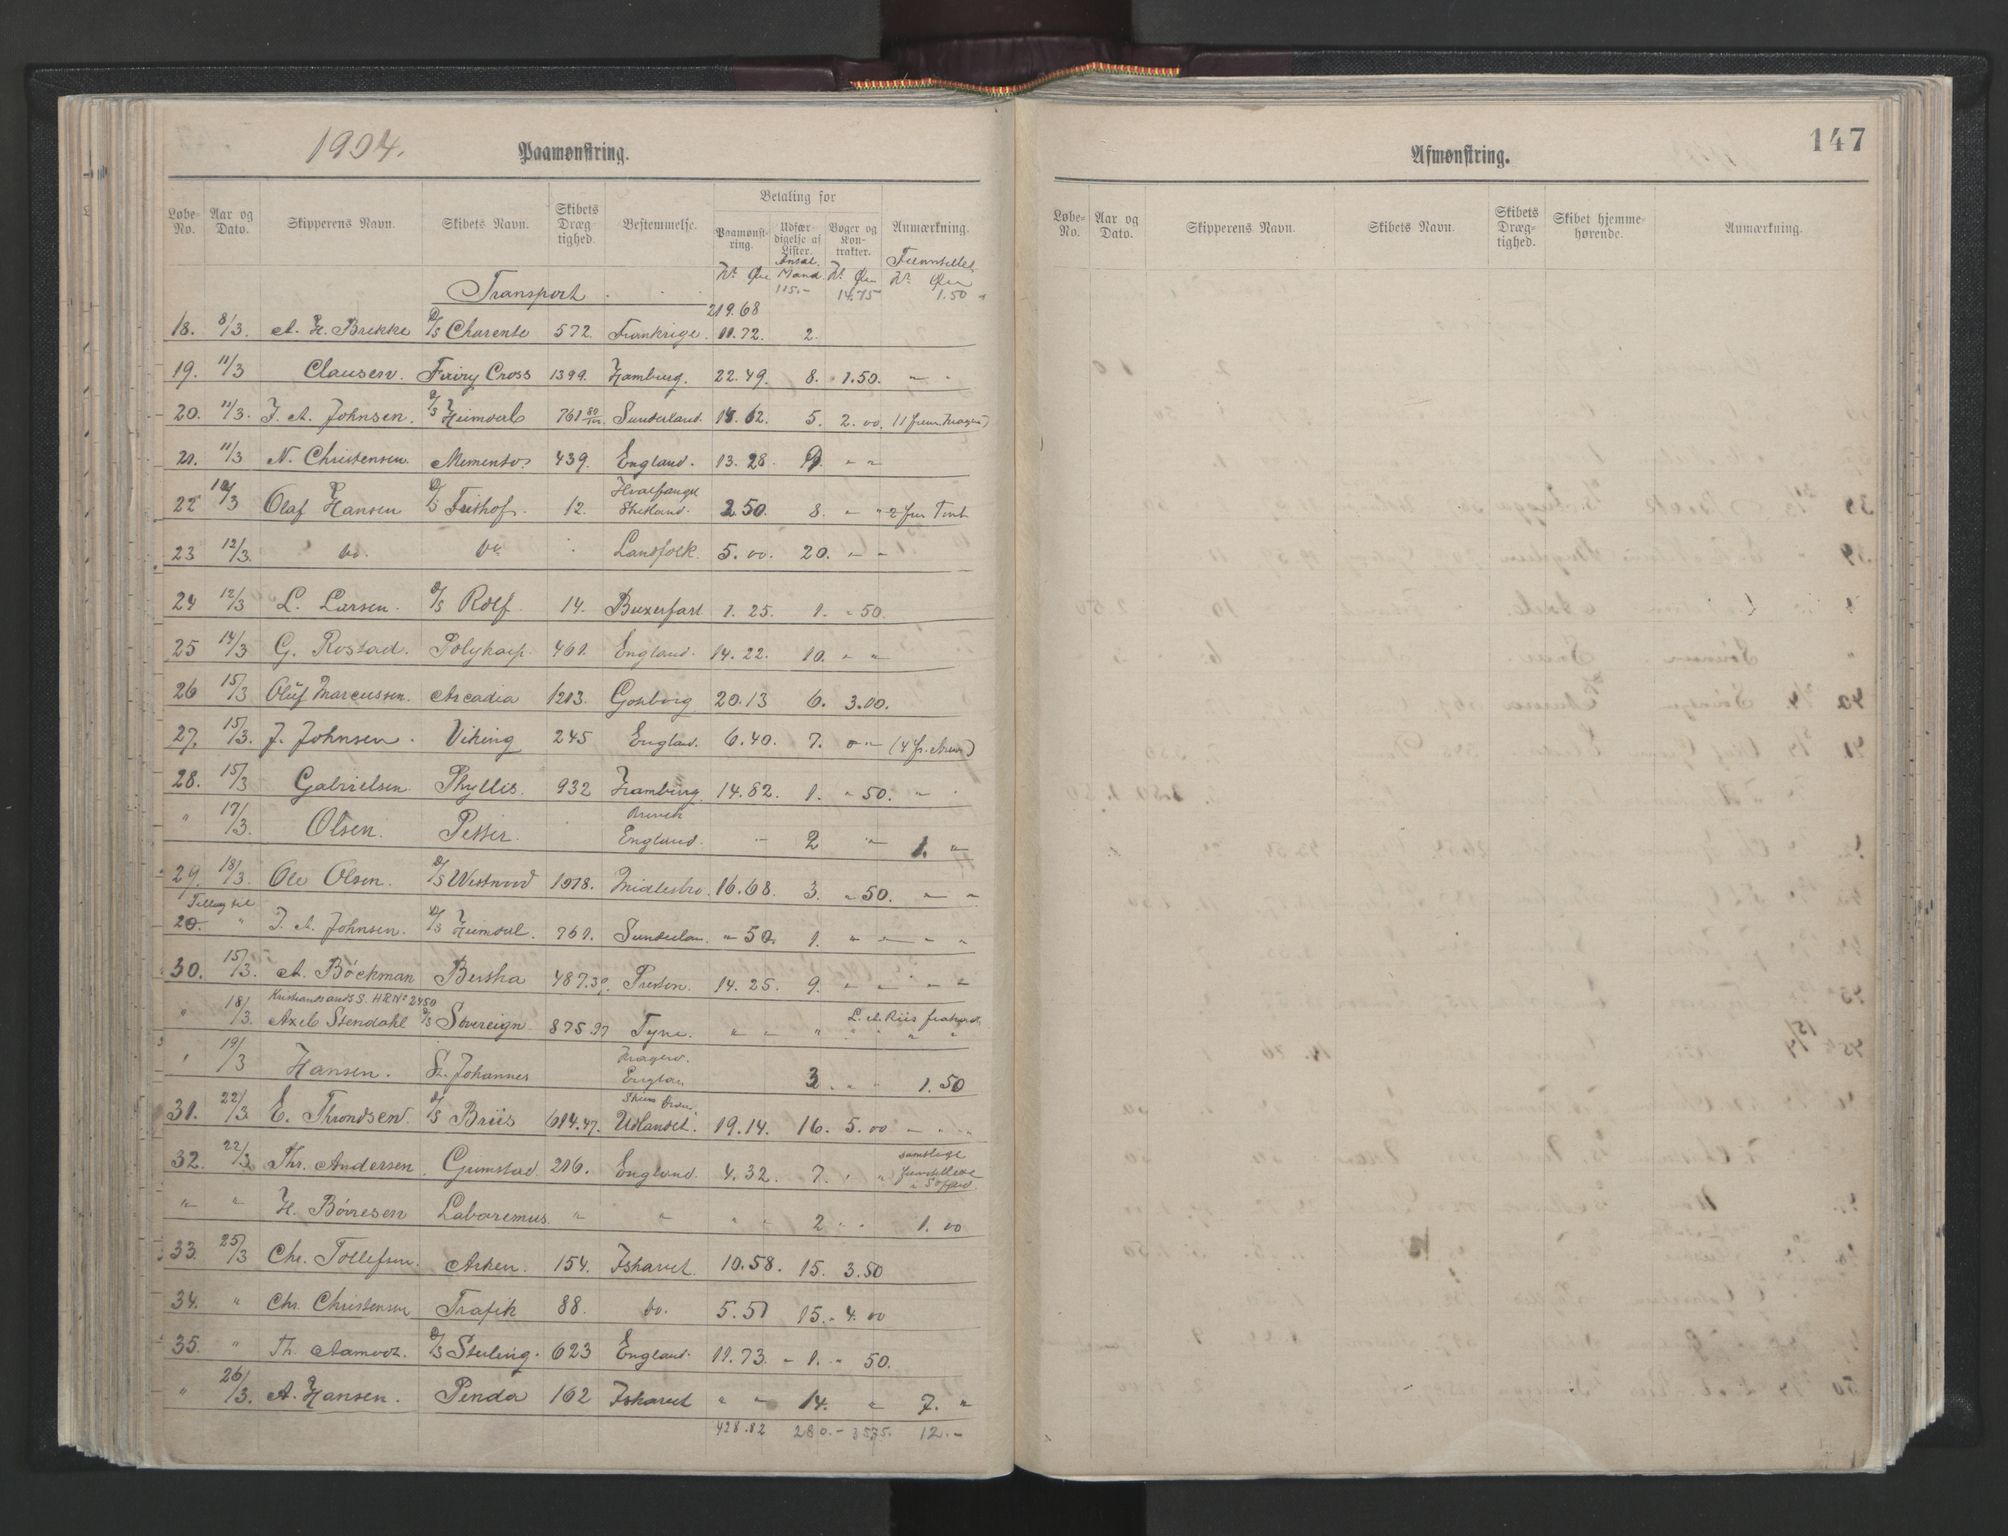 1904.
Paamønstring.
Løbe-No. Aar og Dato. Skipperens Navn. Skibets Navn. Skibets Dræg-tighed. Bestemmelse. Betaling for Paamønst-ring. Udfær-digelse af Lister. Bøger og Kon-trakter. Anmærkning.
Kr. Øre Antal Mand Kr. Øre Kr. Øre
Transport . . . 219.68 115.- 14.75 1.50
18. 8/3. A. H. Brekke D/S Charente 572. Frankrige. 11.72. 2.
19. 11/3 Clausen. Fairy Cross 1399. Hamburg. 22.49. 8. 1.50. " "
20. 11/3. J. A. Johnsen. D/S Heimdal 761 80/100 Sunderland. 18.62. 5. 2.00.
21. 11/3 N. Christensen. Memento. 439. England. 13.28. " "
22 12/3 Olaf Hansen D/S Frithof. 12. Hvalfangst Shetland. 2.50. 8. " "
23 12/3. do. do. Landfolk. 5.00. 20. " "
24 12/3 L. Larsen. D/S Rolf. 14. Buxerfart 1.25. 1. " 50.
25 14/3 G. Rostad. Polykarp. 461. England. 14.22. 10. " "
26 15/3 Oluf Marcussen. Arcadia 1213. Gøteborg 20.13 6. 3.00.
27. 15/3. J. Johnsen. Viking 245 England. 6.40. 7. " "
28. 15/3 Gabrielsen Phyllis. 932 Hamburg. 14.82. 1. " 50. " "
" 17/3. Olsen. Petter. Brevik England. " 2 " 1. "
29. 18/3. Ole Olsen. D/S Westnord 1078. Midlesbro. 16.68. 3. " 50. " "
Tillæg til
20. " J. A. Johnsen. D/S Heimdal. 761. Sunderlan. " 50. 1. " " " "
30. 15/3. A. Bøckman Bertha 487.39. Preston. 14.25. 9. " " " "
Kristiansands S. HR No 2450
" 18/3. Axel Stendahl D/S Sovereign 875.97 Tyne. " " " " " " "
" 19/3 Hansen. St. Johannes Kragerø. Englan 3 " " 1.50
31. 22/3. E. Throndsen. D/S Briis 614.47. Udlandet. 19.14. 16. 5.00 " " "
32. 22/3 Thr. Andersen. Grimstad. 216. England. 4.32. 7. " "
" " H. Børresen Laboremus. " " " " 2 " " 1.00
33. 25/3 Chr. Tollefsen. Asken. 154. Ishavet. 10.58. 15. 3.50
34. " Chr. Christensen Trafik 88. do. 5.51 15. 4.00
35. " Th. Aamodt. D/S Sterling. 623 England. 11.73. " 1. " 50.
" 26/3. A. Hansen. Penda 162 Ishavet " " 14. " 7. "
428.82 280.- 35.75. 12.-
147
Afmønstring.
Løbe-No. Aar og Dato. Skipperens Navn. Skibets Navn. Skibets Dræg-tighed. Skibet hjemme-hørende. Anmærkning.